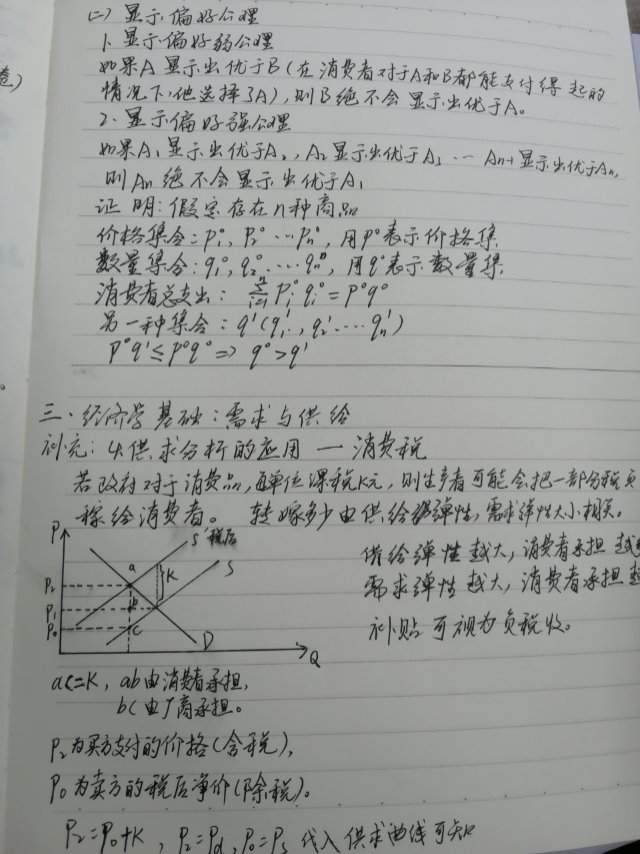 (二) 显示偏好公理
1. 显示偏好弱公理
如果A显示出优于B(在消费者对于A和B都能支付得起的
卷)
情况下,他选择了A),则B绝不会显示出优于A。
2. 显示偏好强公理
如果A₁显示出优于A₂,A₂显示出优于A₃ … Aₙ₋₁显示出优于Aₙ,
则Aₙ绝不会显示出优于A₁
证明:假定存在n种商品
价格集合:P₁⁰, P₂⁰ … Pₙ⁰, 用P⁰表示价格集
数量集合:q₁⁰, q₂⁰ … qₙ⁰, 用q⁰表示数量集
消费者总支出: Σⁿᵢ₌₁ Pᵢ⁰qᵢ⁰ = P⁰q⁰
另一种集合:q'(q₁', q₂' … qₙ')
P⁰q' ≤ P⁰q⁰ ⇒ q⁰ > q'
三、经济学基础:需求与供给
补充:4.供求分析的应用 — 消费税
若政府对于消费品,每单位课税K元,则生产者可能会把一部分税负
转嫁给消费者。 转嫁多少由供给弹性,需求弹性大小相关。
供给弹性越大,消费者承担越
需求弹性越大,消费者承担越
补贴可视为负税收。
P
S'税后
S
a
K
P₂
P₁
b
P₀
c
D
Q
ac=K, ab由消费者承担,
bc由厂商承担。
P₂为买方支付的价格(含税),
P₀为卖方的税后净价(除税)。
P₂=P₀+K, P₂=Pd, P₀=Ps 代入供求曲线可知